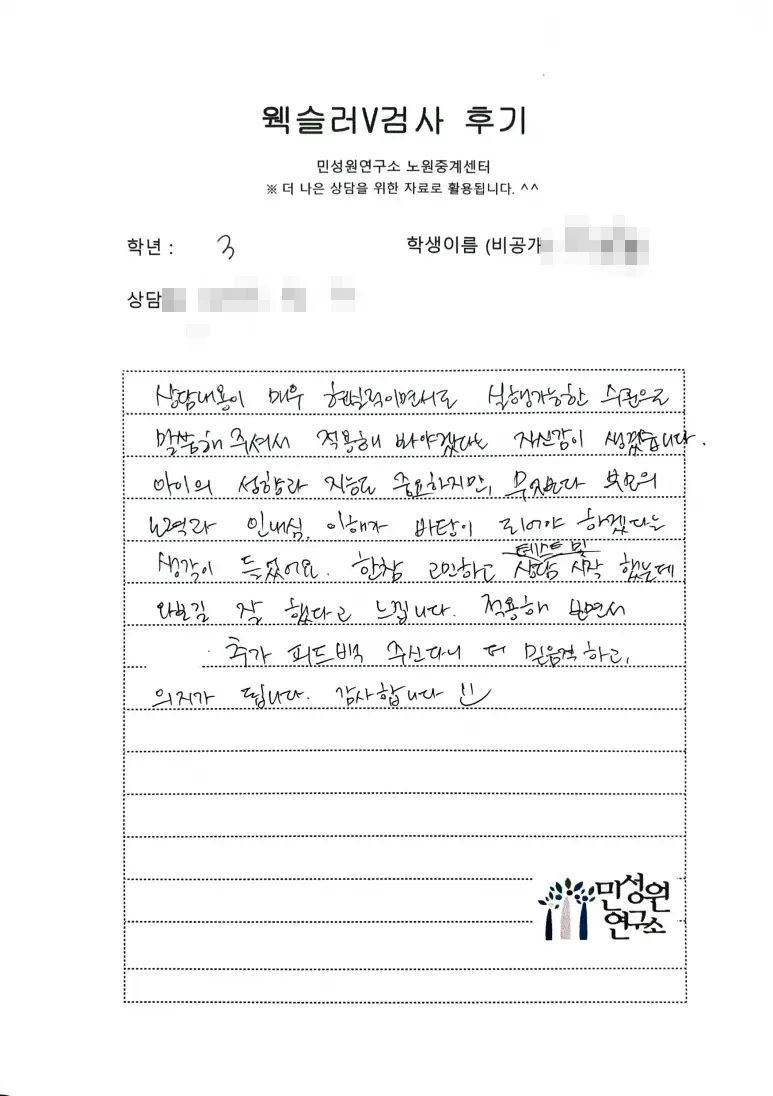 웩슬러V검사 후기
민성원연구소 노원중계센터
※ 더 나은 상담을 위한 자료로 활용됩니다. ^^
학년 : 3
학생이름 (비공개
상담
상담내용이 매우 현실적이면서도 실행가능한 수준으로
말씀해 주셔서 적용해 봐야겠다는 자신감이 생겼습니다.
아이의 성향과 지능도 중요하지만, 무엇보다 부모의
노력과 인내심, 이해가 바탕이 되어야 하겠다는
생각이 들었어요. 한참 고민하고 테스트 및 상담 시작 했는데
와보길 잘 했다고 느낍니다. 적용해 보면서
추가 피드백 주신다니 더 믿음직하고,
의지가 됩니다. 감사합니다 !!
민성원
연구소